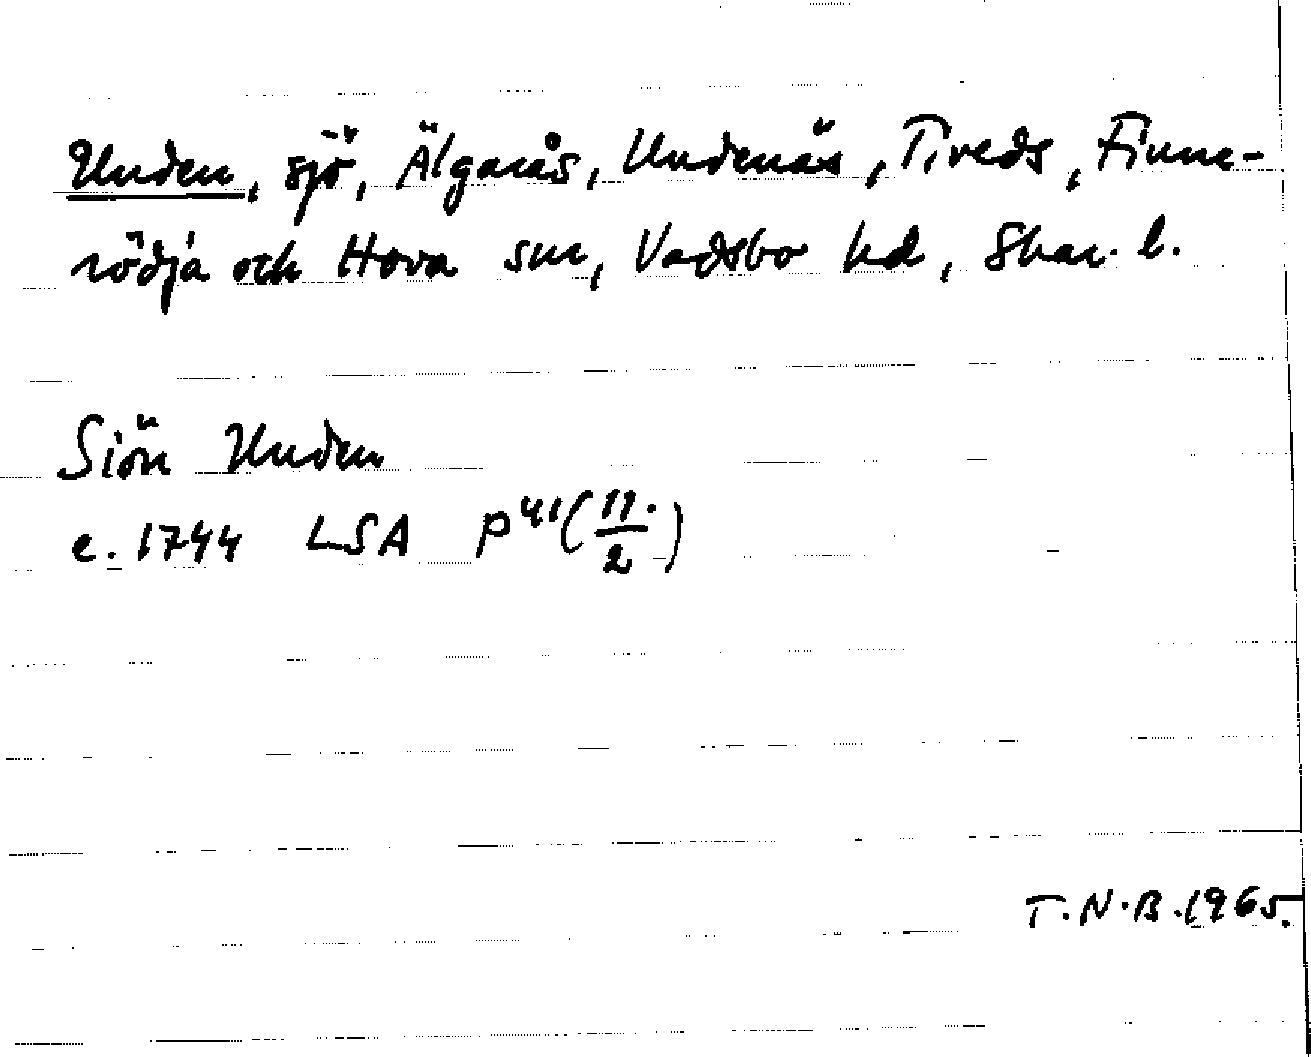 Unden, sjö, Älgarås, Undenäs, Tiveds, Finne-
rödja och Hova snr, Vadsbo hd, Skar. l.
Siön Unden
c. 1744 LSA P41(11./2)
T.N.B. 1965.